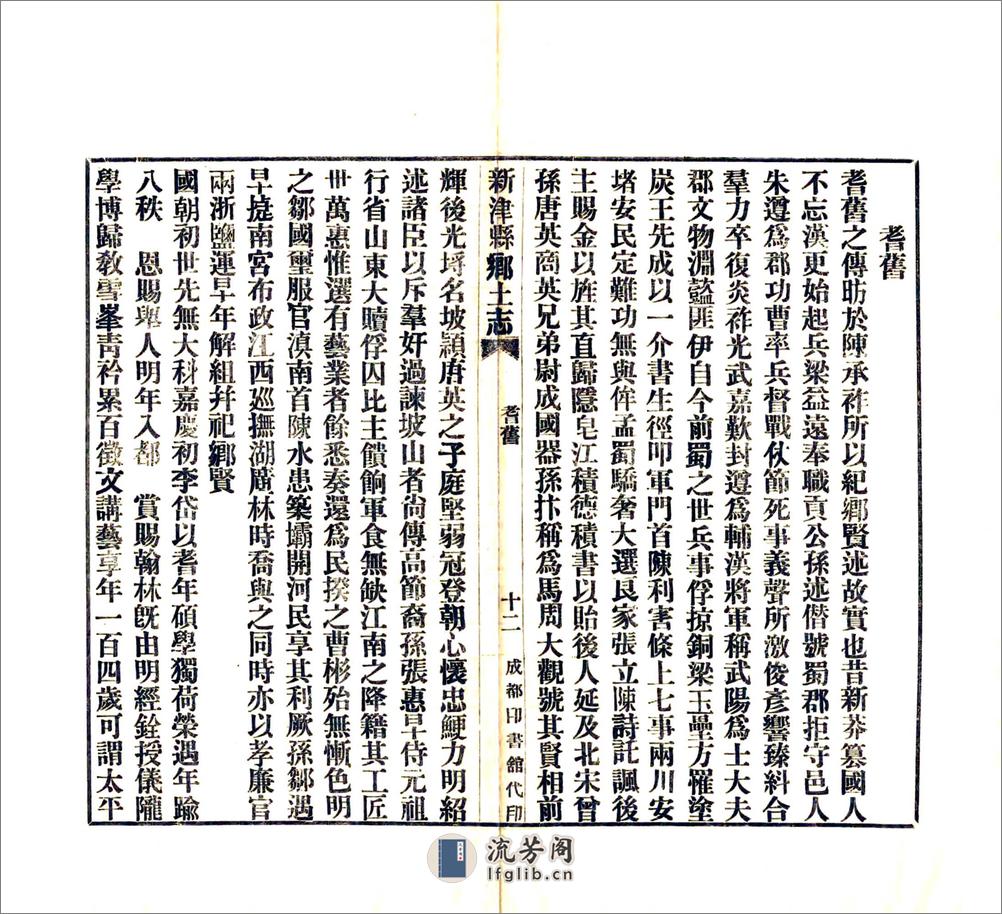 耆舊
耆舊之傳昉於陳承祚所以紀鄉賢述故實也昔新莽篡國人
不忘漢更始起兵梁益遠奉職貢公孫述僭號蜀郡拒守邑人
朱遵爲郡功曹率兵督戰伏節死事義聲所激俊彦響臻糾合
羣力卒復炎祚光武嘉歎封遵爲輔漢將軍稱武陽爲士大夫
郡文物淵懿匪伊自今前蜀之世兵事俘掠銅梁玉壘方罹塗
炭王先成以一介書生徑叩軍門首陳利害條上七事兩川安
堵安民定難功無與侔孟蜀驕奢大選良家張立陳詩託諷後
主賜金以旌其直歸隱皂江積德積書以貽後人延及北宋曾
孫唐英商英兄弟尉成國器孫抃稱爲馬周大觀號其賢相前
新津縣鄉土志
耆舊
十二
成都印書舘代印
輝後光埒名坡潁唐英之子庭堅弱冠登朝心懷忠鯁力明紹
述諸臣以斥羣奸過諫坡山者尙傳高節裔孫張惠早侍元祖
行省山東大贖俘囚比主饋餉軍食無缺江南之降籍其工匠
卅萬惠惟選有藝業者餘悉奏還爲民揆之曹彬殆無慚色明
之鄒國璽服官滇南首陳水患築壩開河民享其利厥孫鄒遇
早捷南宮布政江西巡撫湖廣林時喬與之同時亦以孝廉官
兩浙鹽運早年解組幷祀鄉賢
國朝初世先無大科嘉慶初李岱以耆年碩學獨荷榮遇年踰
八秩 恩賜舉人明年入都 賞賜翰林旣由明經銓授儀隴
學博歸敎雪峯靑衿累百徵文講藝享年一百四歲可謂太平
流芳阁
lfglib.cn